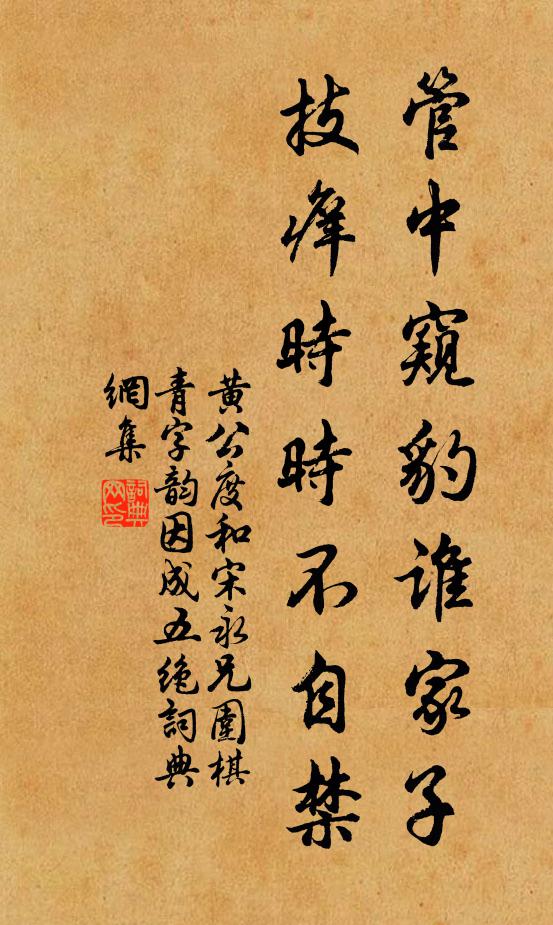 管中窺豹誰家子
技癢時時不自禁
黄公度和宋永兄圍棋
青字韵因成五绝詞典
網集
詞典網印